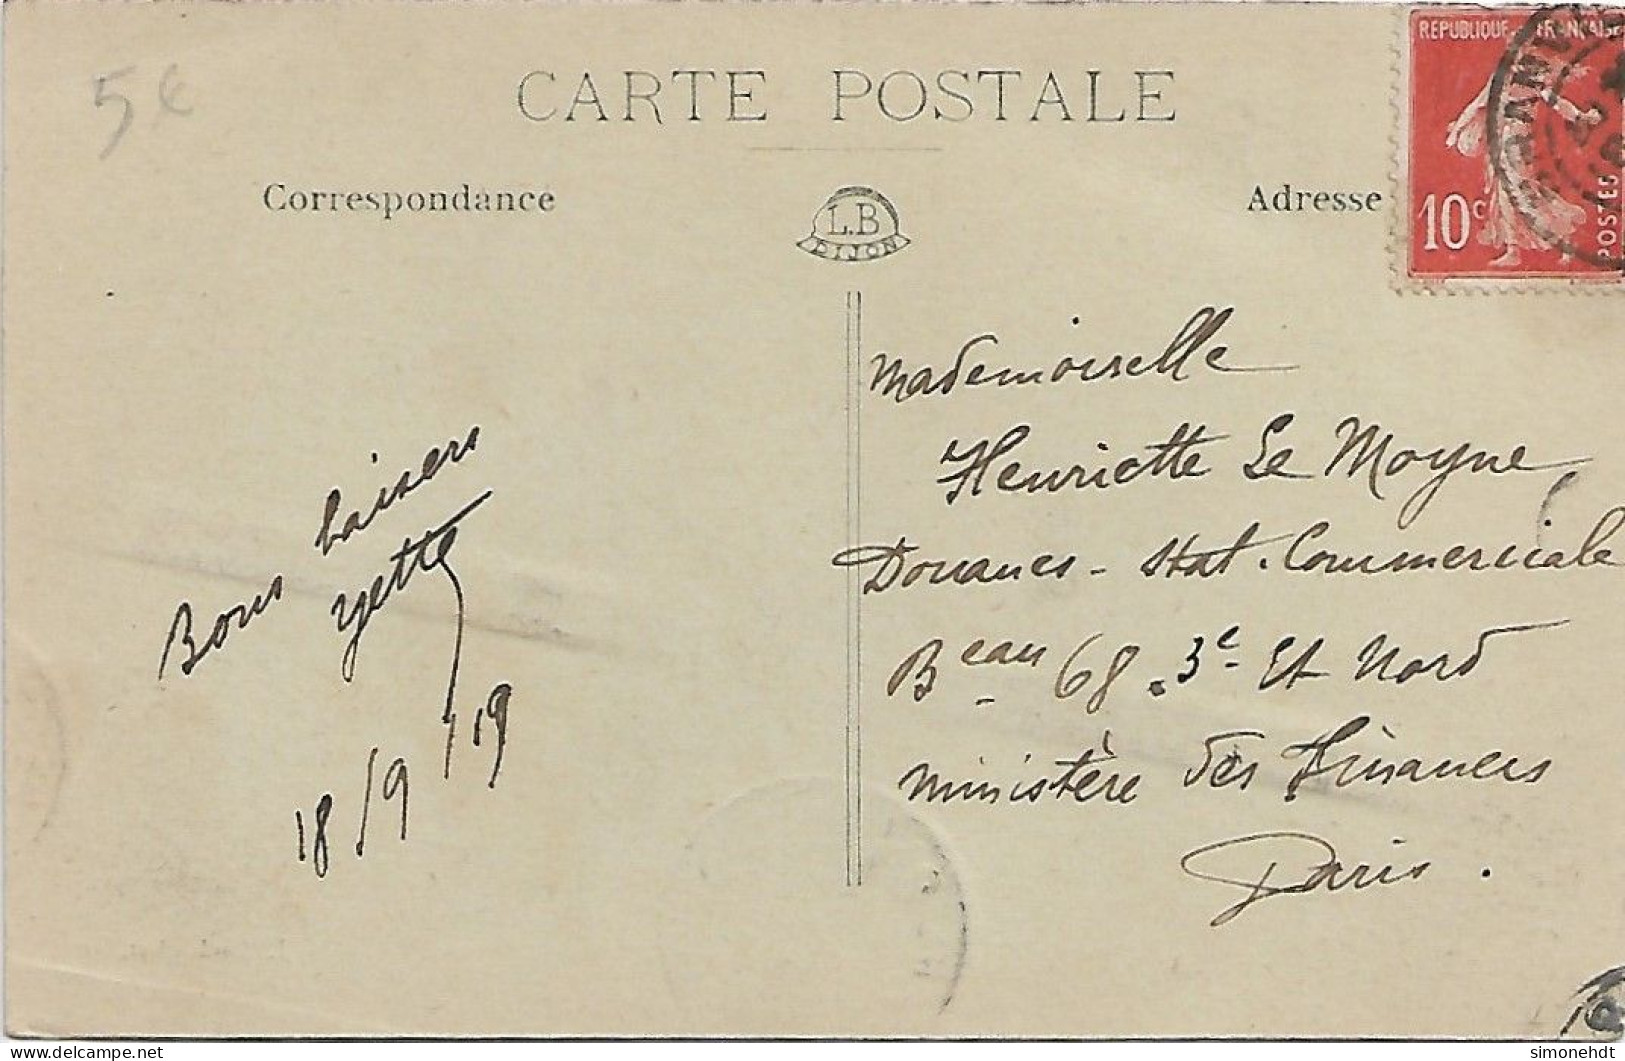 5€
CARTE POSTALE
Correspondance
L.B
DIJON
Adresse
REPUBLIQUE FRANÇAISE
10c
POSTES
Bons baisers
Yette
18/9/19
Mademoiselle
Henriette Le Moyne
Douanes - Stat. Commerciale
Beau 68. 3e Et Nord
Ministère des Finances
Paris.
simonehdt